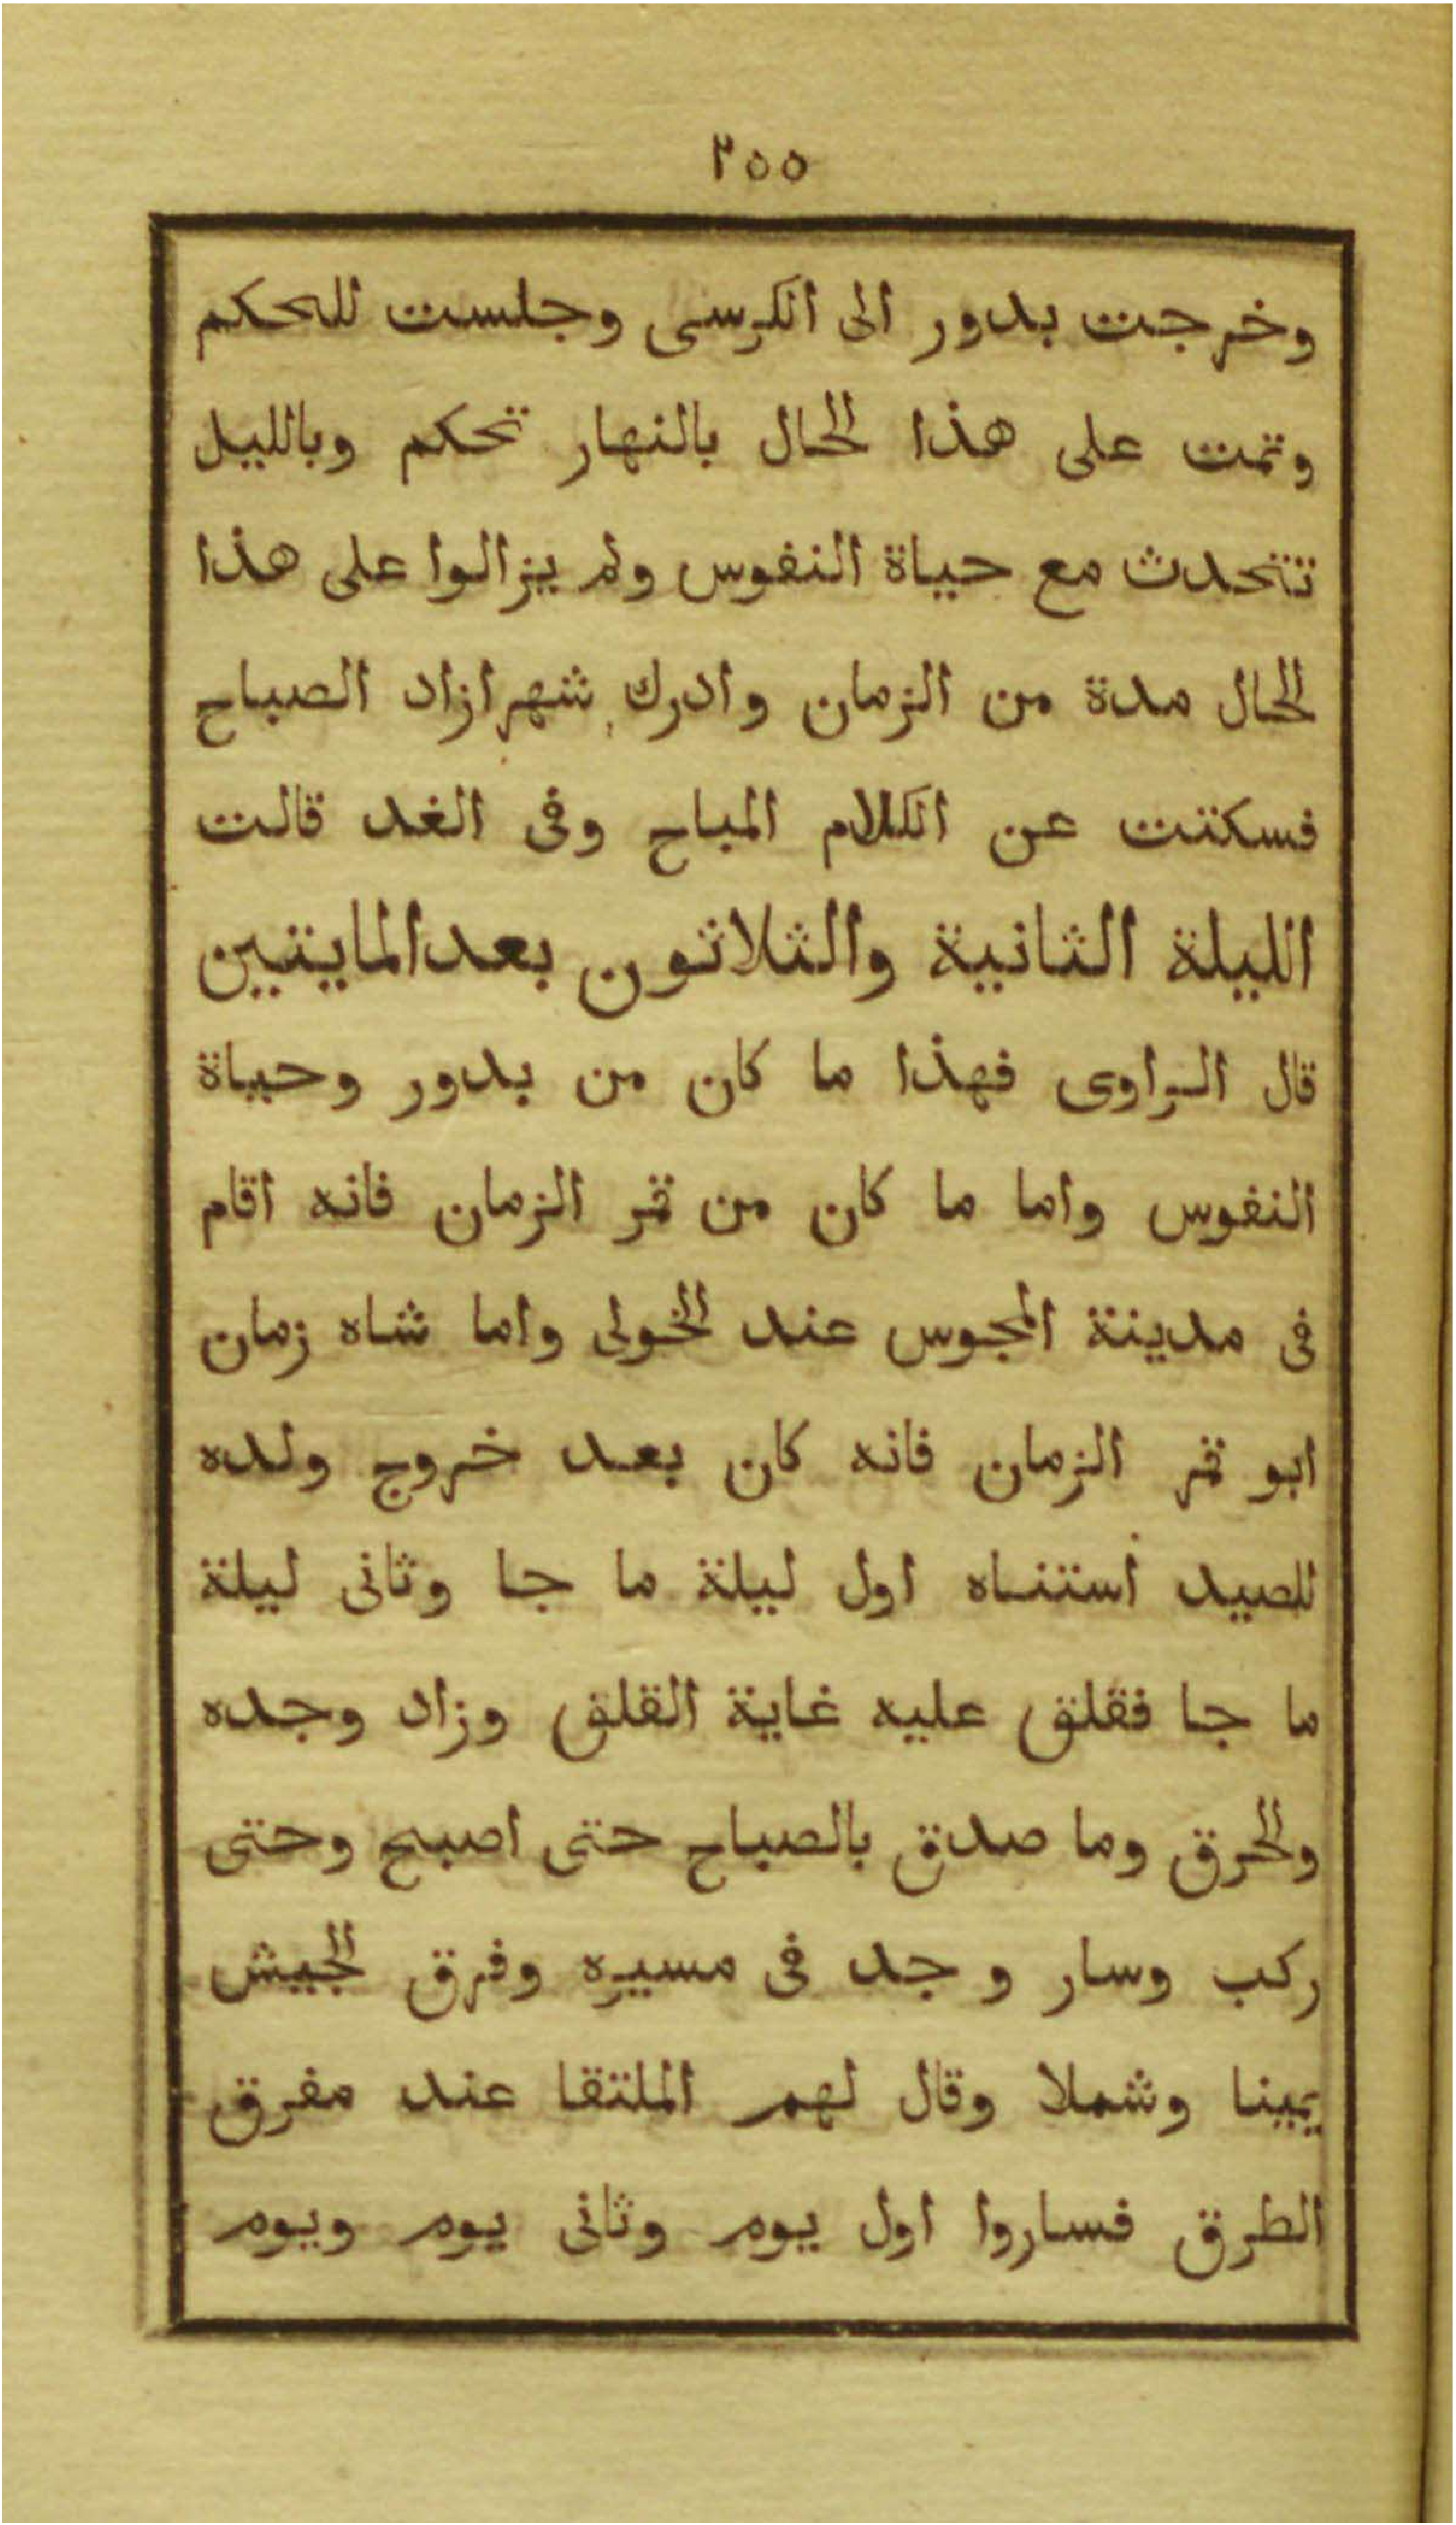 ٢٥٥
وخرجت بدور الى الكرسى وجلست للحكم
وتمت على هذا الحال بالنهار تحكم وبالليل
تتحدث مع حياة النفوس ولم يزالوا على هذا
الحال مدة من الزمان وادرك شهرازاد الصباح
فسكتت عن الكلام المباح وفى الغد قالت
الليلة الثانية والثلاثون بعدالمايتين
قال الراوى فهذا ما كان من بدور وحياة
النفوس واما ما كان من قمر الزمان فانه اقام
فى مدينة المجوس عند الخولى واما شاه زمان
ابو قمر الزمان فانه كان بعد خروج ولده
للصيد استناه اول ليلة ما جا وثانى ليلة
ما جا فقلق عليه غاية القلق وزاد وجده
والحرق وما صدق بالصباح حتى اصبح وحتى
ركب وسار وجد فى مسيره وفرق الجيش
يمينا وشملا وقال لهم الملتقا عند مفرق
الطرق فساروا اول يوم وثانى يوم ويوم